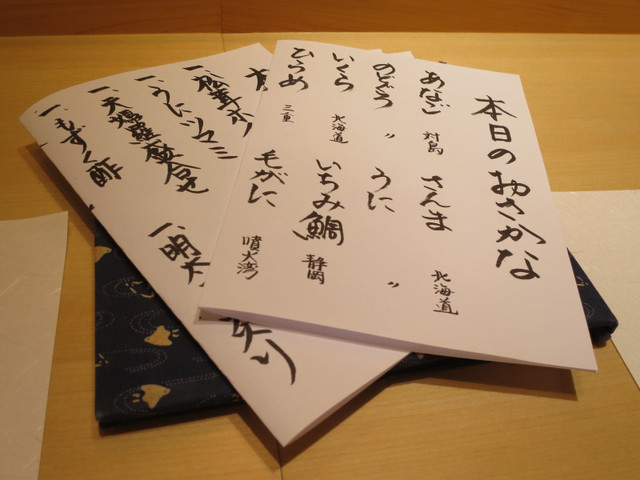 本日のおさかな
あなご 対島 さんま 北海道
のどぐろ 〃 うに 〃
いくら 北海道 いちみ鯛 静岡
ひらめ 三重 毛がに 噴火湾
一、松茸
一、うにツマミ
一、天婦羅盛合せ 一、明太
一、もずく酢